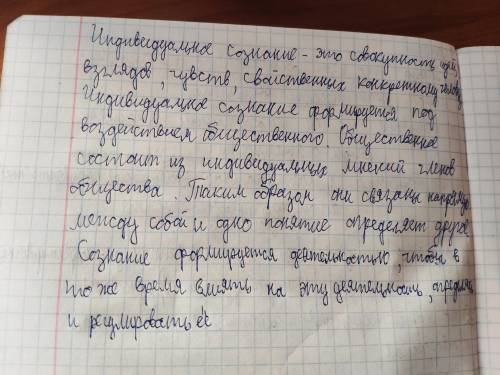 Индивидуальное сознание - это совокупность идей,
взглядов, чувств, свойственных конкретному
Индивидуальное сознание формируется под
воздействием общественного. Общественное
состоит из индивидуальных мнений членов
общества. Таким образом они связаны напрямую
между собой и одно понятие определяет другое.
Сознание формируется деятельностью, чтобы в
то же время влиять на эту деятельность, определяя
и регулировать её